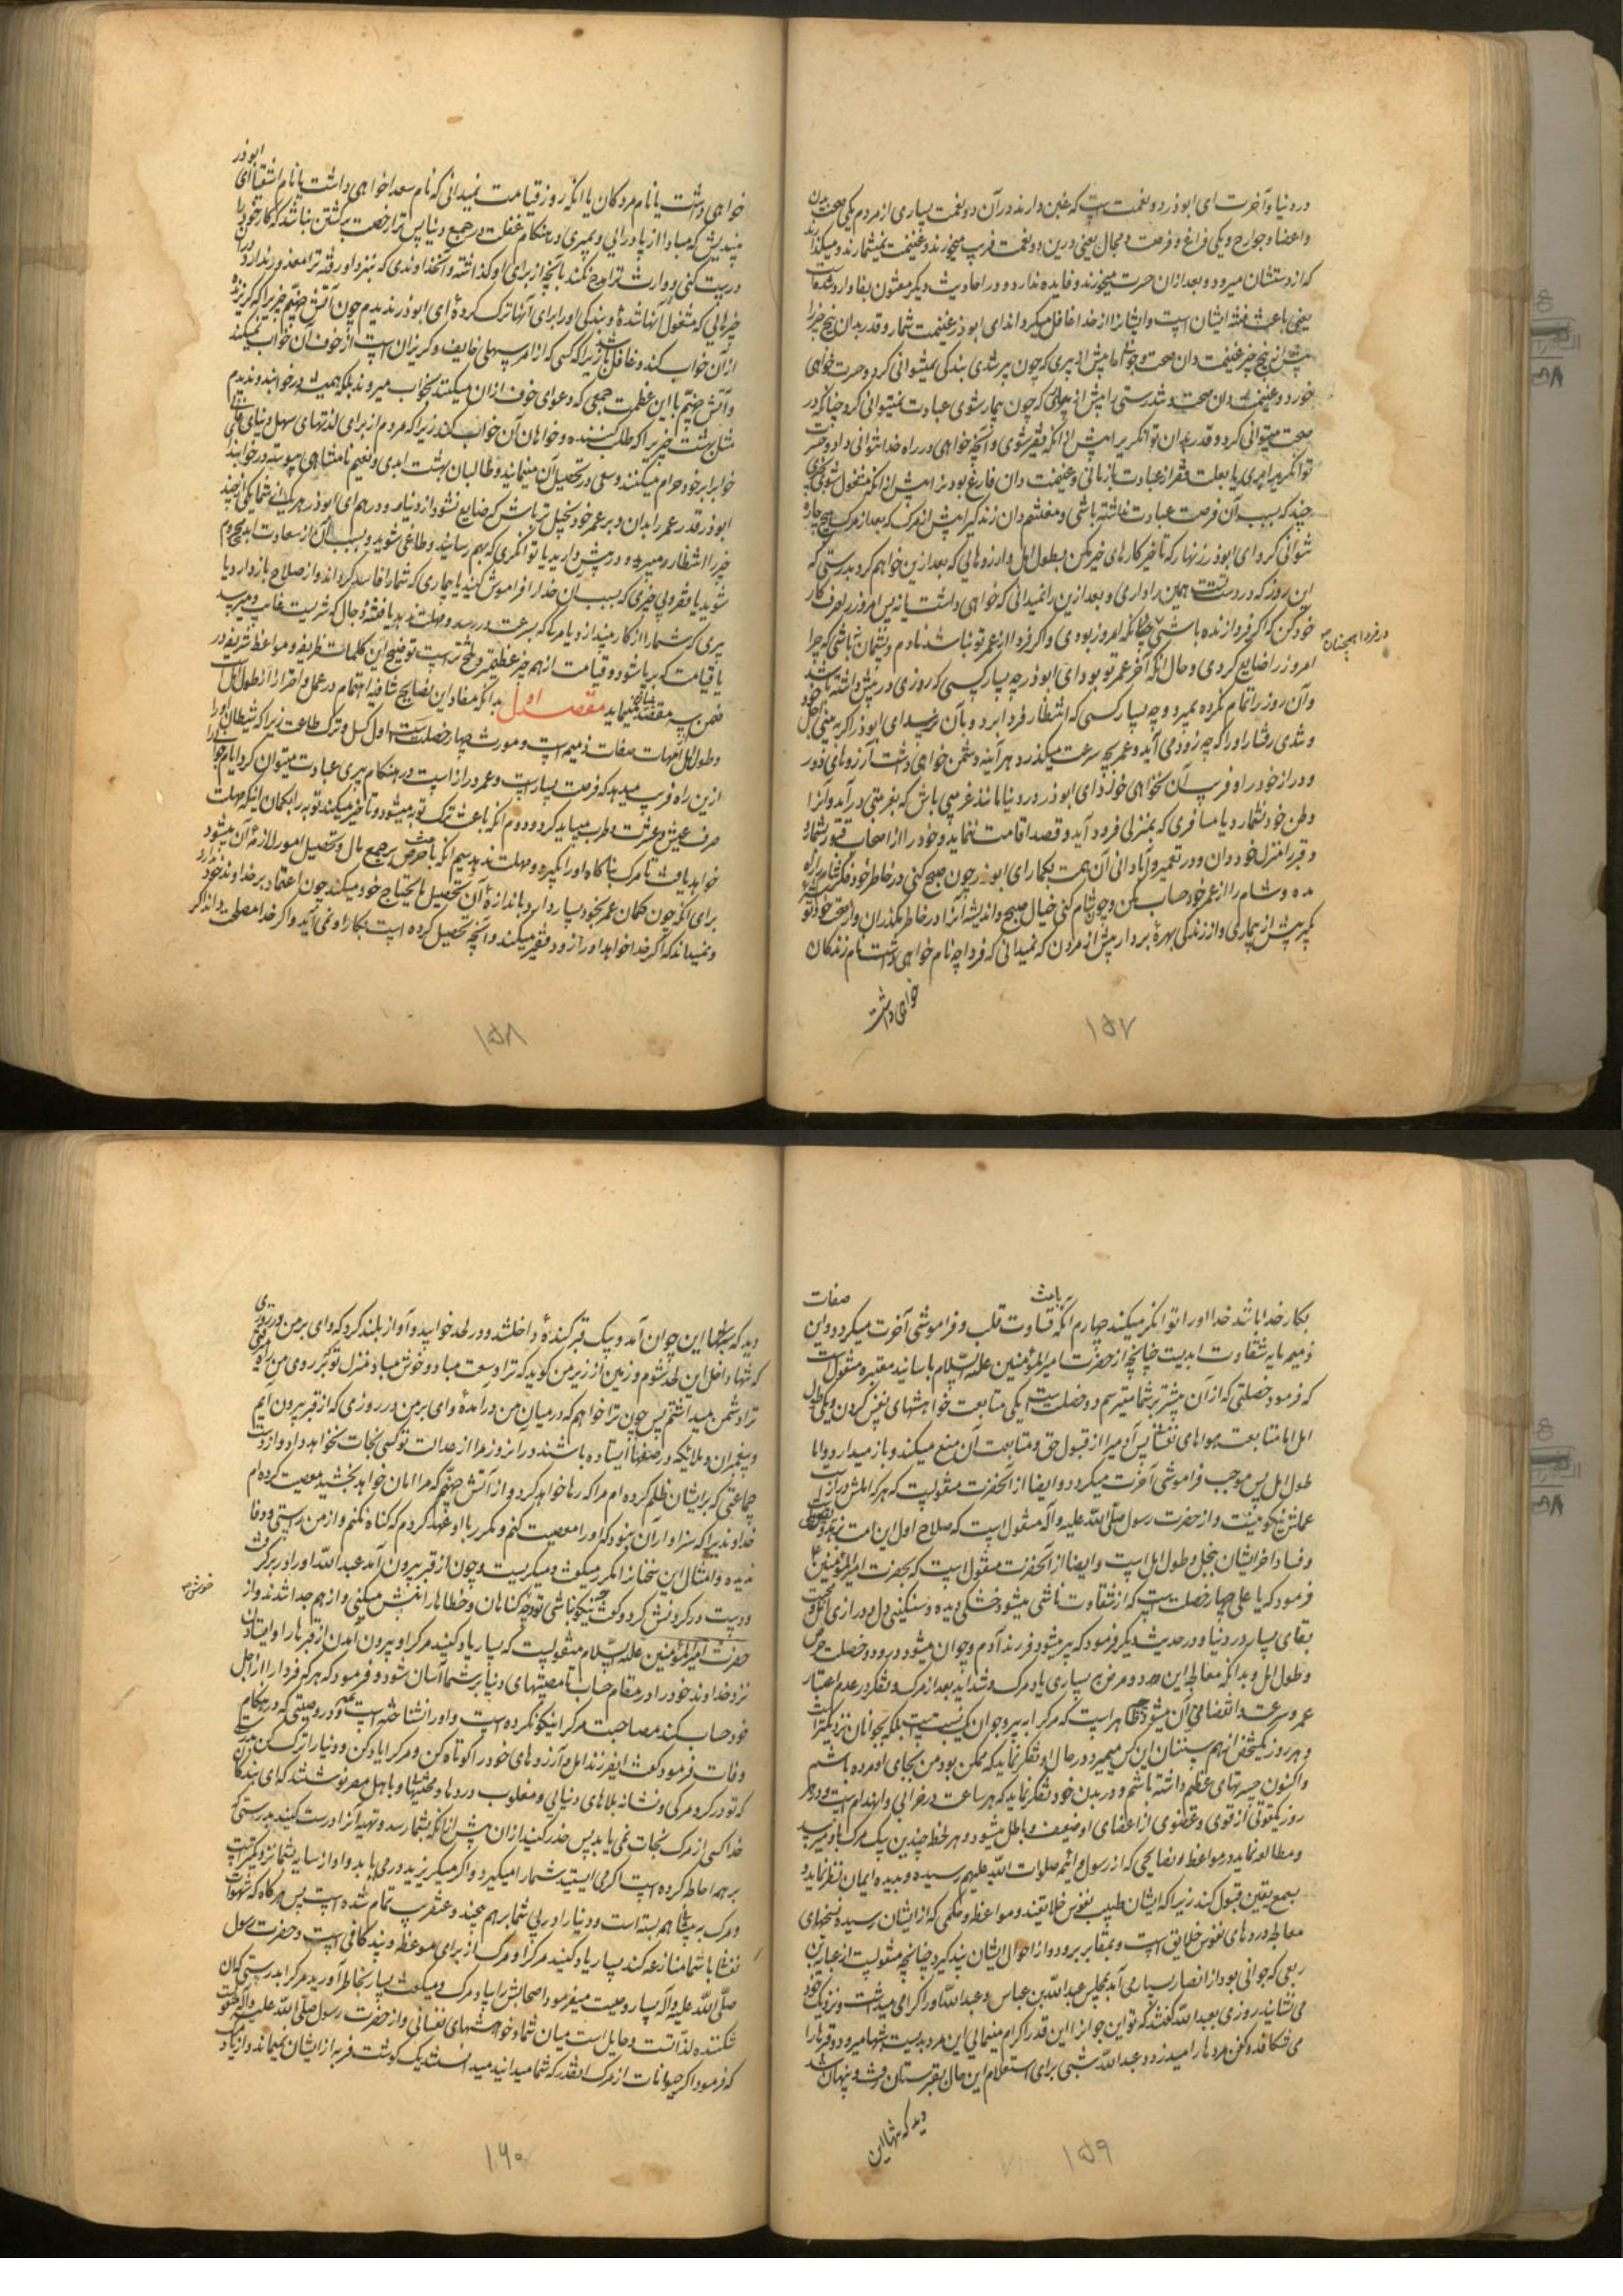 در دنیا و آخرت ای ابوذر دو نعمت است که غبن دارند در آن دو نعمت بسیاری از مردم یکی صحت بدن
و اعضا و جوارح و یکی فراغ و فرصت و مجال یعنی درین دو نعمت فریب میخورند و غنیمت نمیشمارند و میکذارند
که از دستشان میرود و بعد از ان حسرت میخورند و فایده ندارد و در احادیث دیکر مفتون بفا وارد شده است
یعنی باعث فتنه ایشان است و ایشانرا از خدا غافل میکرداند ای ابوذر غنیمت شمار و قدر بدان پنج چیز را
پیش از پنج چیز غنیمت دان صحت و جوانی را پیش از پیری که چون پیر شدی بندکی نمیتوانی کرد و حسرت خواهی
خورد و غنیمت دان صحت و تندرستی را پیش از بیماری که چون بیمار شوی عبادت نمیتوانی کرد چنانکه در
صحت میتوانی کرد و قدر بدان توانکریرا پیش از انکه فقیر شوی و آنچه خواهی در راه خدا نتوانی داد و حسرت
توانکری بری یا بعلت فقر از عبادت باز مانی و غنیمت دان فارغ بودنرا پیش از انکه مشغول شوی بکاری
چند که بسبب آن فرصت عبادت نداشته باشی و مغتنم دان زندکیرا پیش از مرک که بعد از مرک هیچ چاره
نتوانی کرد ای ابوذر زنهار که تاخیر کارهای خیر مکن بطول امل و ارزوهایی که بعد ازین خواهم کرد بدرستی که
این روز که در دست تست همین را داری و بعد ازین را نمیدانی که خواهی داشت یا نه پس امروز را صرف کار
خود کن که اکر فردا زنده باشی چنانکه امروز بودی و اکر فردا از عمر تو نباشد نادم و پشیمان نباشی که چرا
در فردا همچنان
امروز را ضایع کردی و حال انکه آخر عمر تو بود ای ابوذر چه بسیار کسی که روزی در پیش داشته باشد
و آن روز را تمام نکرده بمیرد و چه بسیار کسی که انتظار فردا برد و بآن نرسد ای ابوذر اکر به بینی اجل خود
و تندی رفتار او را که چه زود می آید و عمر بچه سرعت میکذرد هر آینه دشمن خواهی داشت آرزوهای دور
و دراز خود را و فریب آن نخواهی خورد ای ابوذر در دنیا مانند غریبی باش که بغربتی در آید و آنرا
وطن خود نشمارد یا مسافری که بمنزلی فرود آید و قصد اقامت ننماید و خود را از اصحاب قبور بشمار
و قبر را منزل خود دان و در تعمیر و آبادانی آن همت بکمار ای ابوذر چون صبح کنی در خاطر خود فکر شام راه
مده و شام را از عمر خود حساب مکن و چون شام کنی خیال صبح و اندیشه آنرا در خاطر مکذران و از صحت خود توشه
بکیر پیش از بیماری و از زندکی بهره بردار پیش از مردن که نمیدانی که فردا چه نام خواهی داشت نام زندکان
خواهی داشت
۱۵۷
خواهی داشت یا نام مردکان یا انکه روز قیامت نمیدانی که نام سعدا خواهی داشت یا نام اشقیا ای ابوذر
بیندیش که مبادا از پا درائی و بمیری در هنکام غفلت و جمع دنیا پس ترا رخصت برکشتن نباشد که کار خود را
درست کنی و وارث ترا مدح نکند بآنچه از برای او کذاشته و آنخداوندی که بنزد او رفته ترا معذور ندارد در
چیزهایی که مشغول آنها شده و بندکی او را برای آنها ترک کرده ای ابوذر ندیدم چون آتش جهنم چیزیرا که کریزنده
از آن خواب کند و غافل باشد زیرا که کسی که از امر سهلی خایف و کریزان است از خوف آن خواب نمیکند
و آتش جهنم با این عظمت جمعی که دعوای خوف از ان میکنند بخواب میروند بلکه همیشه در خوابند و ندیدم
مثل بهشت چیزیرا که طلب کننده و خواهان آن خواب کند زیرا که مردم از برای لذتهای سهل دنیای فانی
خواب را بر خود حرام میکنند و سعی در تحصیل آن مینمایند و طالبان بهشت ابدی و نعیم نامتناهی پیوسته در خوابند
ابوذر قدر عمر را بدان و بر عمر خود بخیل تر باش که ضایع نشود از دینار و درهم ای ابوذر هر یک از شما یکی از چند
چیز را انتظار میبرد و در پیش دارید یا توانکری که بهم رسانید و طاغی شوید و بسبب آن از سعادت ابد محروم
شوید یا فقر و بی چیزی که بسبب آن خدا را فراموش کنید یا بیماری که شما را فاسد کرداند و از صلاح باز دارد یا
پیری که شما را از کار بیندازد یا مرکی که بسرعت در رسد و مهلت ندهد یا فتنه دجال که شریست غایب و میرسد
یا قیامت که برپا شود و قیامت از همه چیز عظیمتر و تلختر است توضیح این کلمات ظریفه و مواعظ شریفه در
ضمن سه مقصد بیان مینماید مقصد اول بدانکه مفاد این نصایح شافیه اهتمام در عمل و احتراز از طول امل است
و طول امل از امهات صفات ذمیمه است و مورث چهار خصلت است اول کسل و ترک طاعت زیرا که شیطان او را
ازین راه فریب میدهد که فرصت بسیار است و عمر دراز است در هنکام پیری عبادت میتوان کرد ایام جوانی را
صرف عیش و عشرت و طرب میباید کرد و دوم انکه باعث ترک توبه میشود و تاخیر میکند توبه را بکمان اینکه مهلت
خواهد یافت تا مرک ناکاه او را بکیرد و مهلت ندهد سیم انکه باعث حرص بر جمع مال و تحصیل امور لازمه آن میشود
برای انکه چون کمان عمر بخود بسیار دارد باندازه آن تحصیل مایحتاج خود میکند چون اعتماد بر خداوند خود ندارد
و نمیداند که اکر خدا خواهد او را زود فقیر میکند و آنچه تحصیل کرده است بکار او نمی آید و اکر خدا مصلحت داند اکر
۱۵۸
بکار خدا باشد خدا او را توانکر میکند چهارم انکه باعث قساوت قلب و فراموشی آخرت میکردد و این صفات
ذمیمه مایه شقاوت ابدیست چنانچه از حضرت امیر المؤمنین علیه السلام باسانید معتبره منقول است
که فرمود خصلتی که از آن بیشتر بر شما میترسم دو خصلت است یکی متابعت خواهشهای نفس کردن و یکی طول
امل اما متابعت هواهای نفسانی پس آدمیرا از قبول حق و متابعت آن منع میکند و باز میدارد و اما
طول امل پس موجب فراموشی آخرت میکردد و ایضا از آنحضرت منقولست که هر که املش دراز است
عملش نیکو نیست و از حضرت رسول صلی الله علیه و آله منقول است که صلاح اول این امت بزهد و یقین
و فساد آخر ایشان ببخل و طول امل است و ایضا از آنحضرت منقول است که بحضرت امیر المؤمنین ع
فرمود که یا علی چهار خصلت است که از شقاوت ناشی میشود خشکی دیده و سنکینی دل و درازی امل و محبت
بقای بسیار در دنیا و در حدیث دیکر فرمود که پیر میشود فرزند آدم و جوان میشود در او دو خصلت حرص
و طول امل و بدانکه معالجه این درد و مرض ببسیاری یاد مرک و شداید بعد از مرک و تفکر در عدم اعتبار
عمر و سرعت انقضای آن میشود چه ظاهر است که مرک را به پیر و جوان یک نسبت است بلکه بجوانان نزدیکتر است
و هر روز یکشخص از همسنان این کس میمیرد در حال او تفکر نماید که ممکن بود من بجای او مرده باشم
و اکنون حسرتهای عظیم داشته باشم و در بدن خود تفکر نماید که هر ساعت در خرابی و انهدام است و در هر
روز یکقوتی از قوی و عضوی از اعضای او ضعیف و باطل میشود و هر لحظه چندین پیک مرک باو میرسد
و مطالعه نماید در مواعظ و نصایحی که از رسول و ائمه صلوات الله علیهم رسیده و بدیده ایمان نظر نماید و
بسمع یقین قبول کند زیرا که ایشان طبیب نفوس خلایقند و مواعظ و حکمی که از ایشان رسیده نسخهای
معالجه دردهای نفوس خلایق است و بمقابر برود و از احوال ایشان پند کیرد چنانچه منقولست از عبایه بن
ربعی که جوانی بود از انصار بسیار می آمد بمجلس عبدالله بن عباس و عبدالله او را کرامی میداشت و نزدیک خود
می نشانید روزی بعبدالله کفتند که تو این جوانرا این قدر اکرام مینمایی این مرد بدیست شبها میرود و قبرها را
می شکافد و کفن مردها را میدزدد عبدالله شبی برای استعلام این حال بقبرستان رفت و پنهان شد
دید که شبها این
۱۵۹
دید که شبها این جوان آمد و بیک قبر کنده داخل شد و در لحد خوابید و آواز بلند کرد که وای بر من در روزی
که تنها داخل این لحد شوم و زمین از زیر من کوید که ترا وسعت مباد و خوش مباد منزل تو بر روی من راه میرفتی
ترا دشمن میداشتم پس چون ترا خواهم که در میان من درآمدهٔ وای بر من در روزی که از قبر بیرون آیم
و پیغمبران و ملائکه در صفها ایستاده باشند در انروز مرا از عدالت تو کسی نجات نخواهد داد و از دست
جماعتی که بر ایشان ظلم کرده ام مرا که رها خواهد کرد و از آتش جهنم که مرا امان خواهد بخشید معصیت کرده ام
خداوندیرا که سزاوار آن نبود که او را معصیت کنم و مکرر با او عهد کردم که کناه نکنم و از من راستی و وفا
ندیده و امثال این سخنانرا مکرر میکفت و میکریست و چون از قبر بیرون آمد عبدالله او را در بر کرفت
و دست در کردنش کرد و کفت نیکو نباشی تو چه کناهان و خطاها را نبش میکنی و از هم جدا شدند و از
خوش
حضرت امیر المؤمنین علیه السلام منقولست که بسیار یاد کنید مرک را و بیرون آمدن از قبرها را و ایستادن
نزد خداوند خود را در مقام حساب تا مصیبتهای دنیا بر شما آسان شود و فرمود که هر که فردا را از اجل
خود حساب کند مصاحبت مرک را نیکو نکرده است و او را نشناخته است و در وصیتی که در هنکام
وفات فرمود کفت ایفرزند امل و آرزوهای خود را کوتاه کن و مرک را یاد کن و دنیا را ترک کن بدرستی
که تو در کرو مرکی و نشانه بلاهای دنیایی و مغلوب دردها و محنتها و باهل مصر نوشتند که ای بندکان
خدا کسی از مرک نجات نمی یابد پس حذر کنید از ان پیش از انکه بشما رسد و تهیه آنرا درست کنید بدرستی که
بر همه احاطه کرده است اکر می ایستید شما را میکیرد و اکر میکریزید در می یابد و او از سایه بشما نزدیکتر است
و مرک به پیشانی شما هم بسته است و دنیا را در پی شما بر هم میچیند و عنقریب تمام شده است پس هر کاه که شهوات
نفس شما با شما منازعه کند بسیار یاد کنید مرک را و مرک از برای موعظه و پند کافی است و حضرت رسول
صلی الله علیه و آله بسیار وصیت میفرمود اصحابش را بیاد مرک و میکفت بسیار بخاطر آورید مرک را بدرستی که ان
شکننده لذتهاست و حایل است میان شما و خواهشهای نفسانی و از حضرت رسول صلی الله علیه و آله منقول است
که فرمود اکر حیوانات از مرک انقدر که شما میدانید میدانستند یک کوشت فربه از ایشان نمیماند و از یاد
۱۶۰